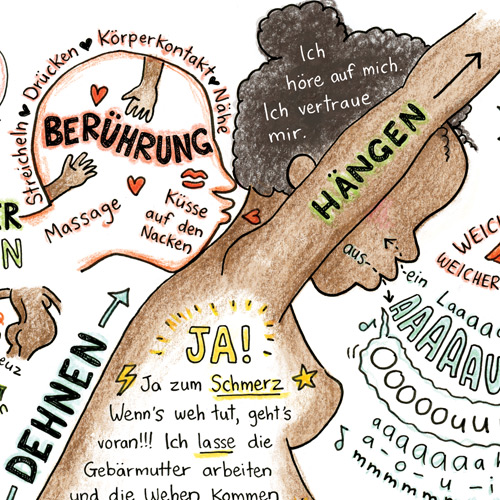 Streicheln ♥ Drücken ♥ Körperkontakt ♥ Nähe
BERÜHRUNG
Massage
Küsse
auf den
Nacken
Ich
höre auf mich.
Ich vertraue
mir.
HÄNGEN
DEHNEN
JA!
Ja zum Schmerz
Wenn's weh tut, geht's
voran!!! Ich lasse die
Gebärmutter arbeiten
und die Wehen kommen
aus-
-ein
WEICH
WEICHER
Laaaaa
AAAAAV
Ooooouu
aaaaaaa
a-o-u-i
mmmmmmm